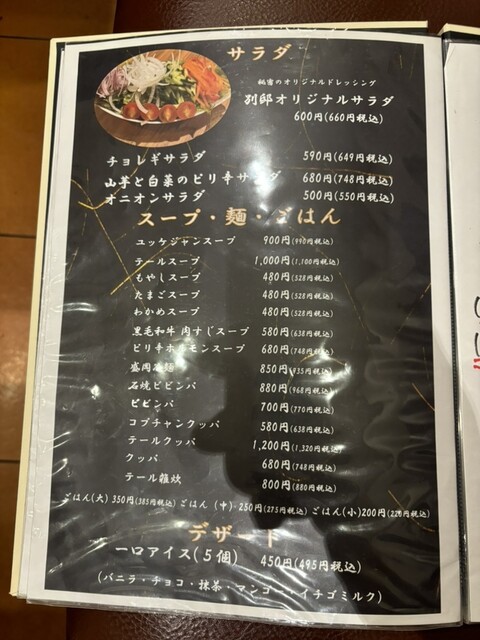 サラダ
秘密のオリジナルドレッシング
別邸オリジナルサラダ
600円(660円税込)
チョレギサラダ 590円(649円税込)
山芋と白菜のピリ辛サラダ 680円(748円税込)
オニオンサラダ 500円(550円税込)
スープ・麺・ごはん
ユッケジャンスープ 900円(990円税込)
テールスープ 1,000円(1,100円税込)
もやしスープ 480円(528円税込)
たまごスープ 480円(528円税込)
わかめスープ 480円(528円税込)
黒毛和牛 肉すじスープ 580円(638円税込)
ピリ辛ホルモンスープ 680円(748円税込)
盛岡冷麺 850円(935円税込)
石焼ビビンバ 880円(968円税込)
ビビンバ 700円(770円税込)
コプチャンクッパ 580円(638円税込)
テールクッパ 1,200円(1,320円税込)
クッパ 680円(748円税込)
テール雑炊 800円(880円税込)
ごはん(大) 350円(385円税込) ごはん (中) 250円(275円税込) ごはん(小)200円(220円税込)
デザート
一口アイス(5個) 450円(495円税込)
(バニラ・チョコ・抹茶・マンゴー・イチゴミルク)